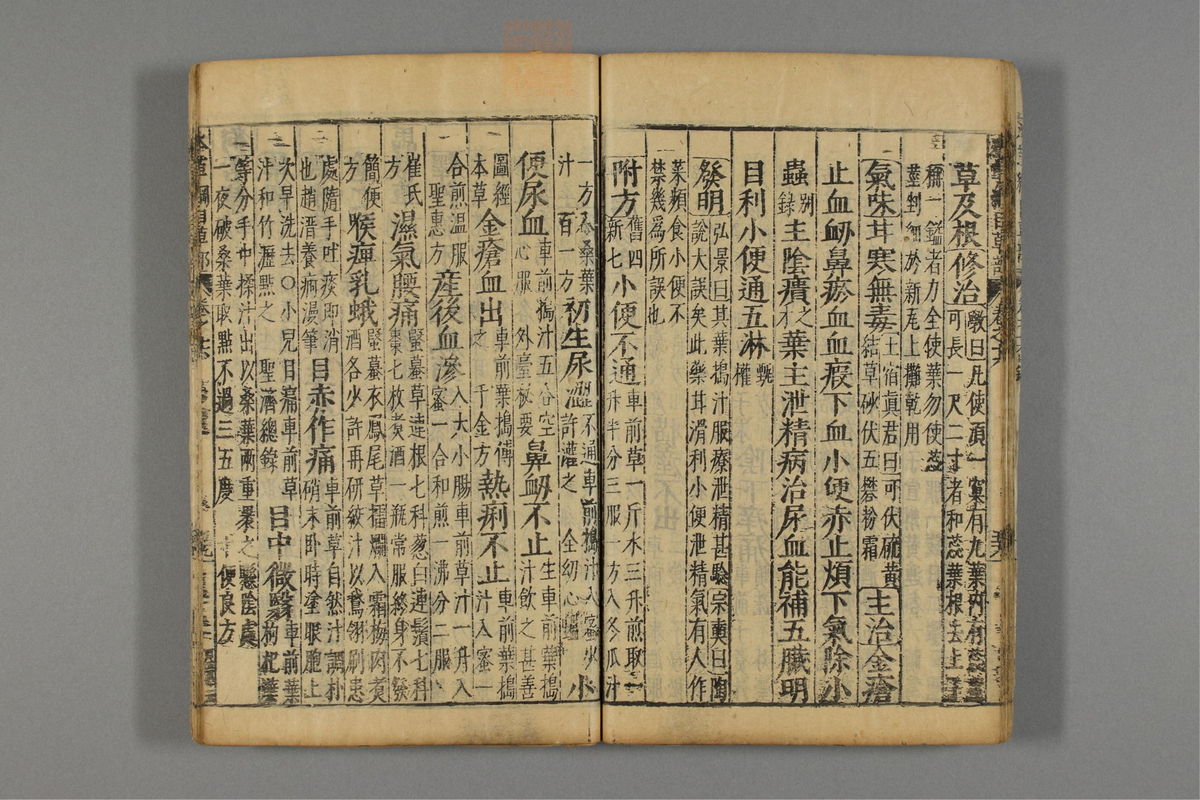 草及根修治斅曰凡使須一窠有九葉內有蕊莖可長一尺二寸者和蕊葉根去土
稱一鎰者力全使葉勿使蕊莖剉細於新瓦上攤乾用
氣味甘寒無毒土宿眞君曰可伏硫黃結草砂伏五礬粉霜主治金瘡
止血衄鼻瘀血血瘕下血小便赤止煩下氣除小
蟲別錄主陰㿉之才葉主泄精病治尿血能補五臟明
目利小便通五淋甄權
發明弘景曰其葉搗汁服療泄精甚驗宗奭曰陶說大誤矣此藥甘滑利小便泄精氣有人作
菜頻食小便不禁幾爲所誤也
附方舊四新七小便不通車前草一斤水三升煎取一升半分三服一方入冬瓜汁
一方入桑葉汁百一方初生尿澀不通車前搗汁入蜜少許灌之全幼心鑑小
便尿血車前搗汁五合空心服外臺秘要鼻衄不止生車前葉搗汁飲之甚善
圖經本草金瘡血出車前葉搗傅之千金方熱痢不止車前葉搗汁入蜜一
合煎温服聖惠方產後血滲入大小腸車前草汁一升入蜜一合和煎一沸分二服
崔氏方濕氣腰痛蝦蟇草連根七科葱白連鬚七科棗七枚煑酒一瓶常服終身不發
簡便方喉痺乳蛾蝦蟇衣鳳尾草擂爛入霜梅肉煑酒各少許再研絞汁以鵞翎刷患
處隨手吐痰即消也趙溍養痾漫筆目赤作痛車前草自然汁調朴硝末卧時塗眼胞上
次早洗去○小兒目痛車前草汁和竹瀝點之聖濟總錄目中微翳車前葉枸杞葉
等分手中揉汁出以桑葉兩重裹之懸陰處一夜破桑葉取點不過三五度十便良方